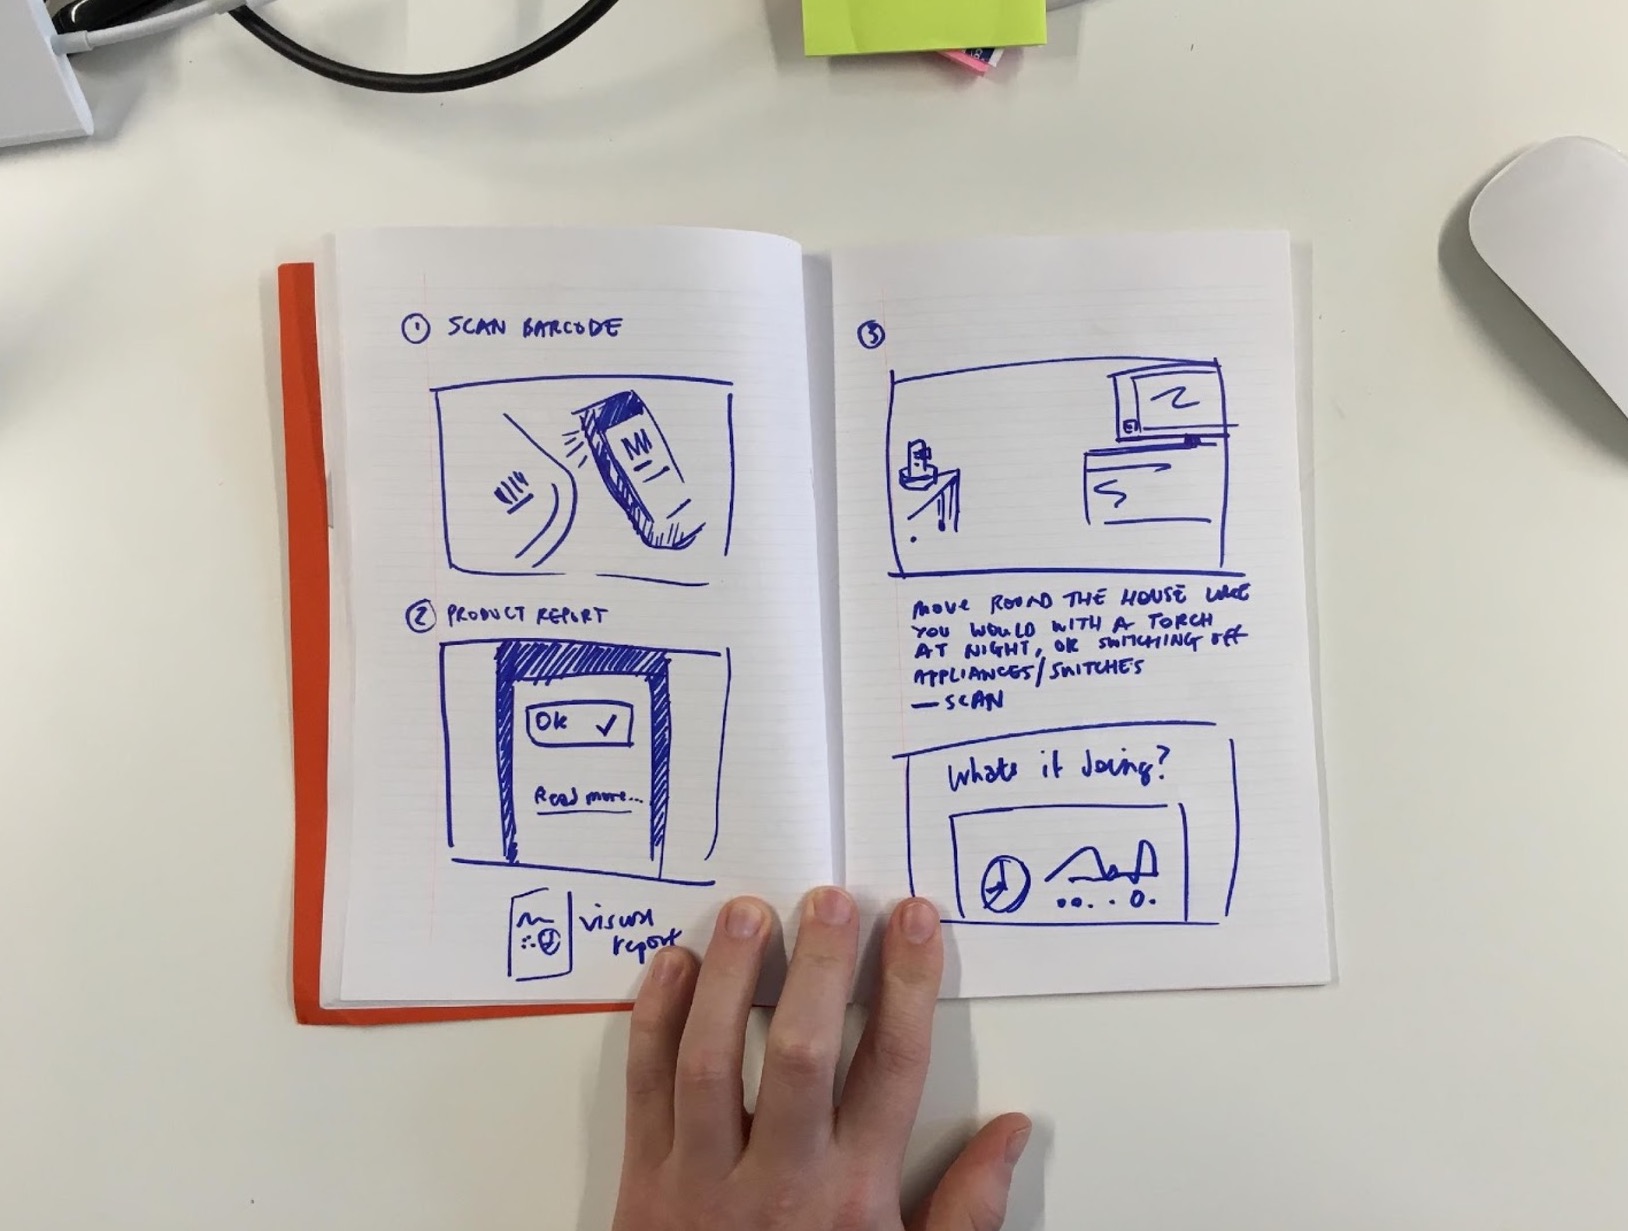 1 SCAN BARCODE
2 PRODUCT REPORT
Ok ✓
Read more...
visual
report
3
MOVE ROUND THE HOUSE LIKE
YOU WOULD WITH A TORCH
AT NIGHT, OR SWITCHING OFF
APPLIANCES/SWITCHES
— SCAN
Whats it doing?